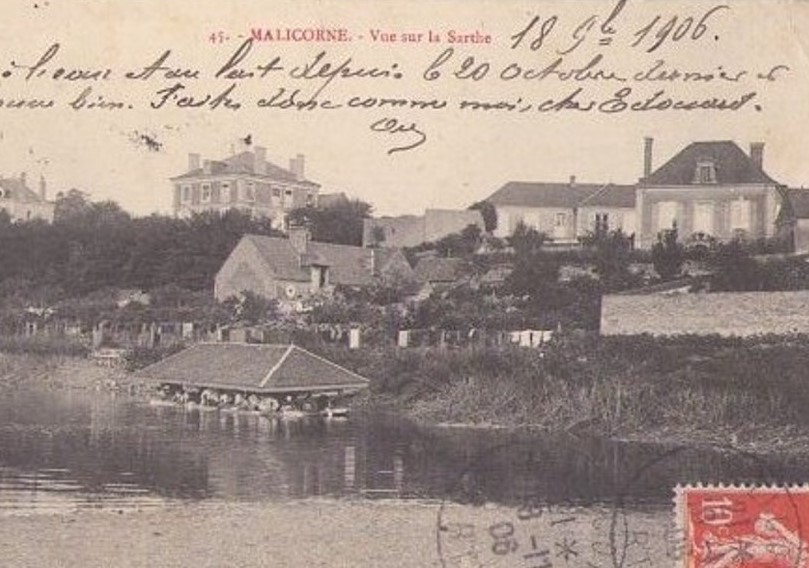 45. - MALICORNE. - Vue sur la Sarthe
18 9bre 1906.
à l'eau et au lait depuis le 20 Octobre dernier et
bien. Faites donc comme moi, cher Edouard.
10
08